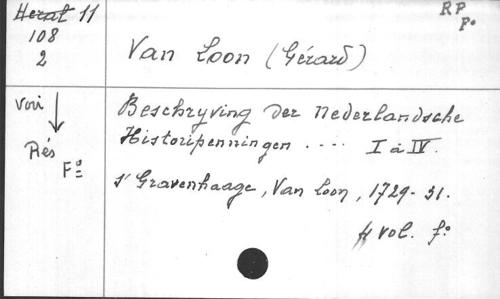 Herat 11
RP
F°
108
2
Van Loon (Gérard)
Vori
Rés
F°
Beschryving der Nederlandsche
Historipenningen .... I à IV.
s' Gravenhaage, Van Loon, 1729-31.
4 vol. f°